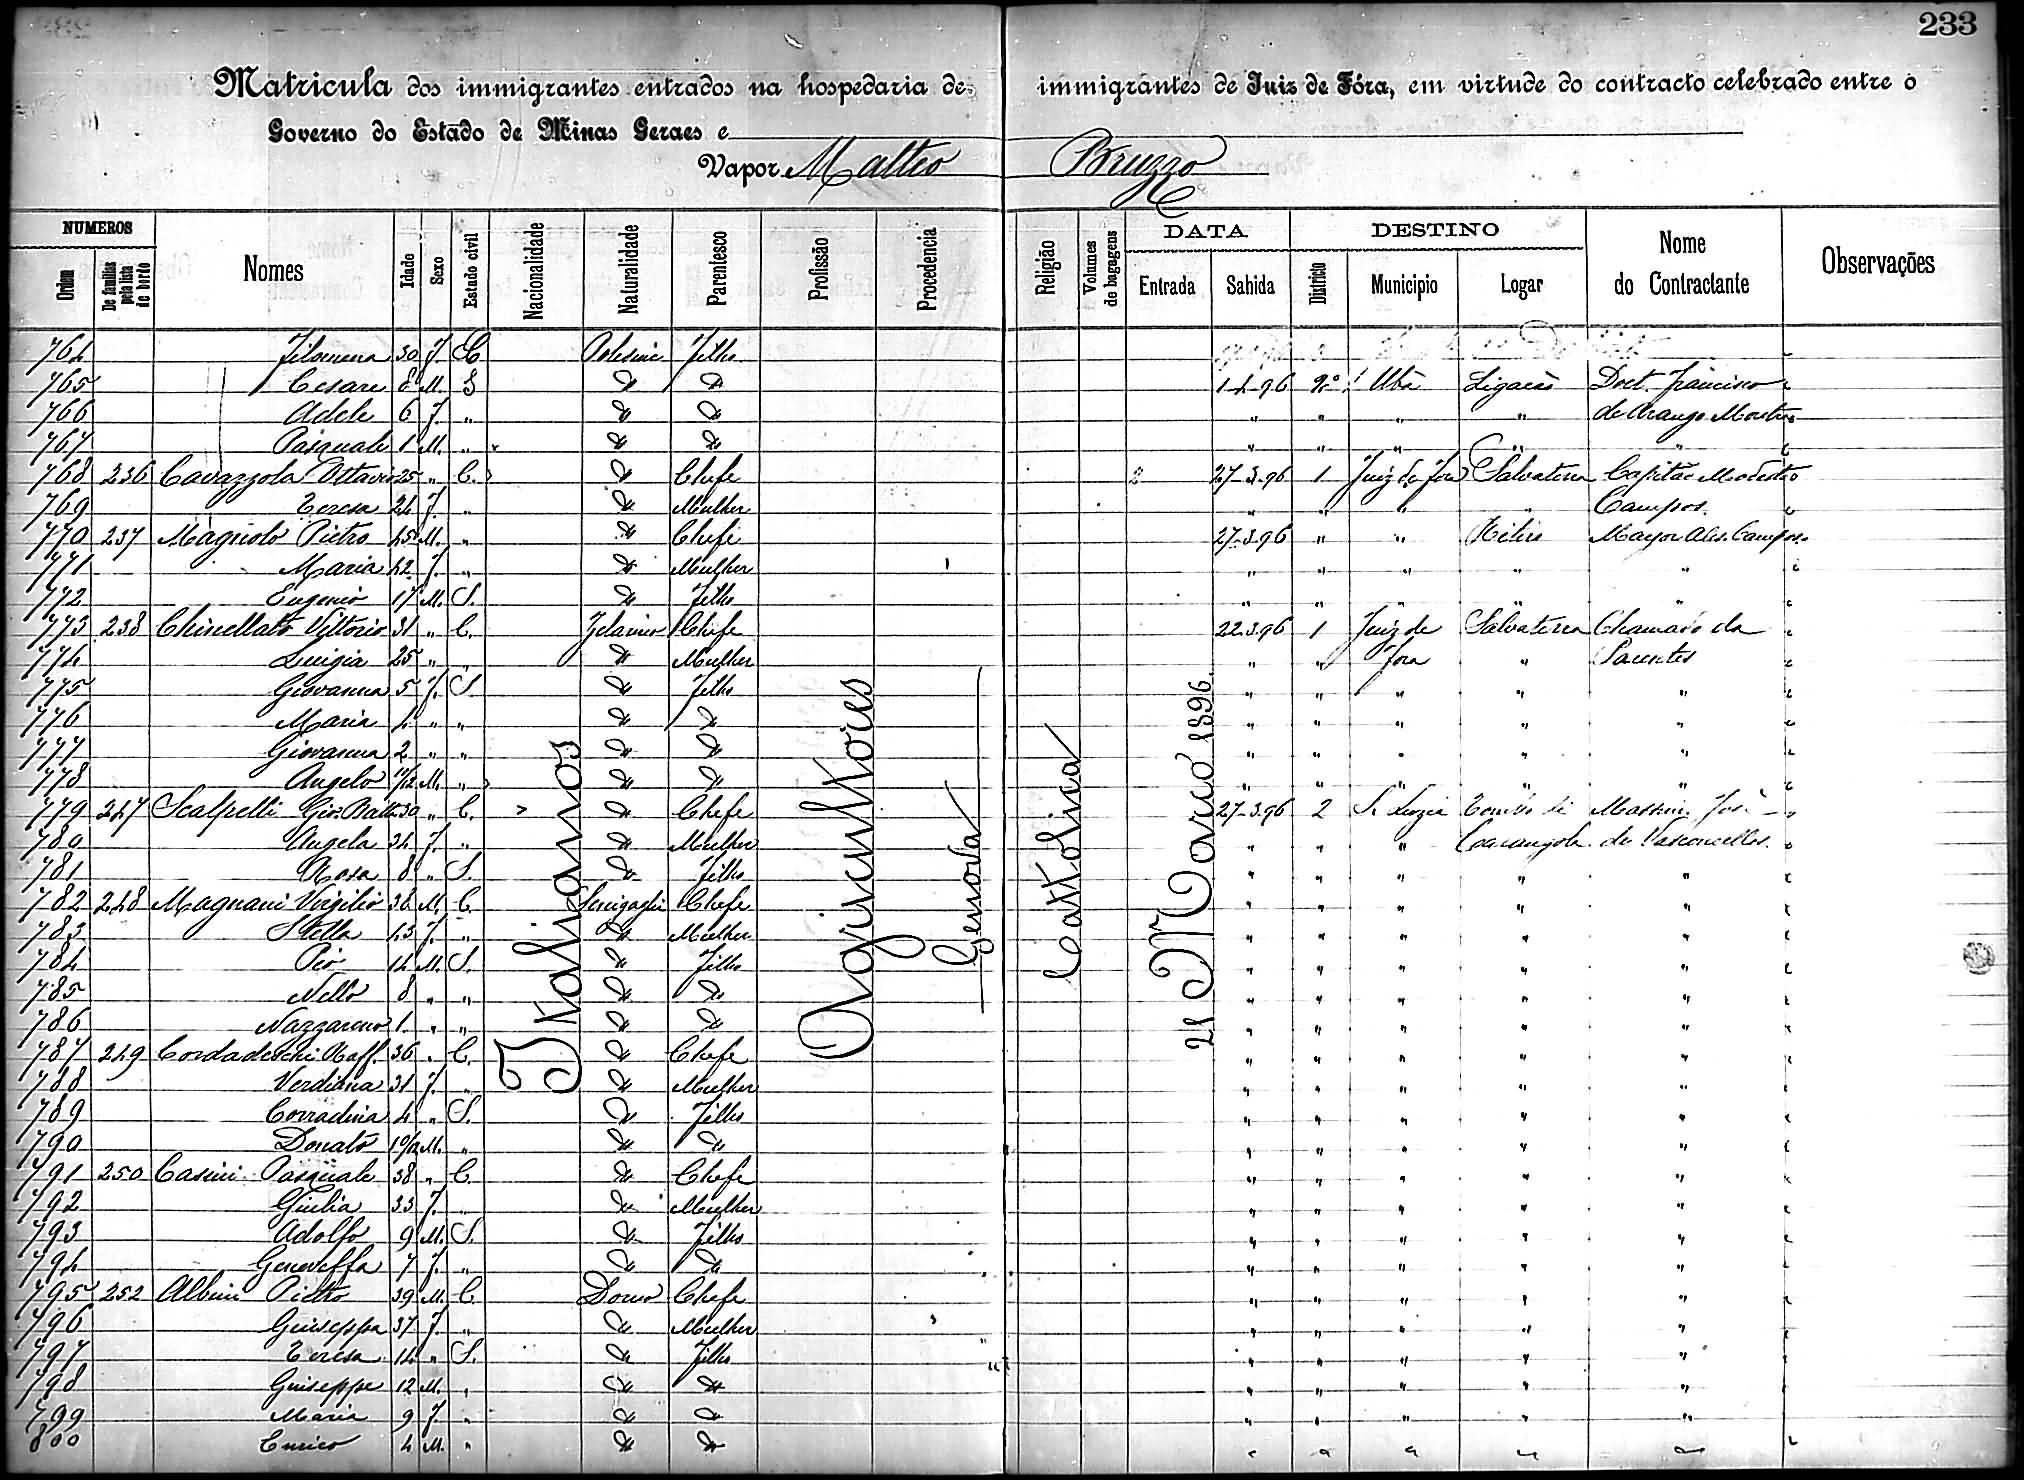 233
Matricula dos immigrantes entrados na hospedaria de immigrantes de Juiz de Fóra, em virtude do contracto celebrado entre o
Governo do Estado de Minas Geraes e
Vapor Matteo Bruzzo
NUMEROS
Ordem
De familias pela lista de bordo
Nomes
Idade
Sexo
Estado civil
Nacionalidade
Naturalidade
Parentesco
Profissão
Procedencia
Religião
Volumes de bagagens
DATA
Entrada
Sahida
DESTINO
Districto
Municipio
Logar
Nome do Contractante
Observações
Italianos
Agricultores
Genova
Cattolica
21 Março 1896.
764 Filomena 30 F. C Polesine Filho
765 Cesare 8 M. S " " 1-4-96 2º Ubá Ligação Doct. Francisco
766 Adele 6 F. " " " " " " " de Araujo
767 Pasquale 1 M. " " " " " " " "
768 236 Cavazzola Ottavio 25 " C. " Chefe 27-3-96 1 Juiz de Fora Salvaterra Capitão Modesto
769 Teresa 24 F. " " Mulher " " " " Campos.
770 237 Magnolo Pietro 45 M. " " Chefe 27-3-96 " " Retiro Mayor Alex. Campos.
771 Maria 42 F. " " Mulher " " " " "
772 Eugenio 17 M. S. " Filho " " " " "
773 238 Chinellato Vittorio 31 " C. Chefe 22.3.96 1 Juiz de Salvaterra Chamado da
774 Luigia 25 " " " Mulher " " Fora " Parentes
775 Giovanna 5 F. S " Filho " " " " "
776 Maria 4 " " " " " " " " "
777 Giovanna 2 " " " " " " " " "
778 Angelo 11/12 M. " " " " " " " "
779 247 Scalpelli Gio. Batta 30 " C. " Chefe 27-3-96 2 S. Luzia Tombos di José
780 Angela 34 F. " " Mulher " " " Carangola de Vasconcellos.
781 Rosa 8 " S. " Filho " " " " "
782 248 Magnani Virgilio 36 M. C. Senigaglia Chefe " " " " "
783 Stella 43 F. " " Mulher " " " " "
784 Pio 14 M. S. " Filho " " " " "
785 Nello 8 " " " " " " " " "
786 Nazzareno 1. " " " " " " " " "
787 249 Cordadeschi Raff. 36 " C. " Chefe " " " " "
788 Verdiana 31 F. " " Mulher " " " " "
789 Corradina 4 " S. " Filho " " " " "
790 Donato 10/12 M. " " " " " " " "
791 250 Casini Pasquale 38 " C " Chefe " " " " "
792 Giulia 33 F. " " Mulher " " " " "
793 Adolfo 9 M. S. " Filho " " " " "
794 Genoveffa 7 F. " " " " " " " "
795 252 Albini Pietro 39 M. C. Chefe " " " " "
796 Giuseppa 37 F. " " Mulher " " " " "
797 Teresa 14 " S. " Filho " " " " "
798 Giuseppe 12 M. " " " " " " " "
799 Maria 9 F. " " " " " " " "
800 Enrico 4 M. " " " " " " " "